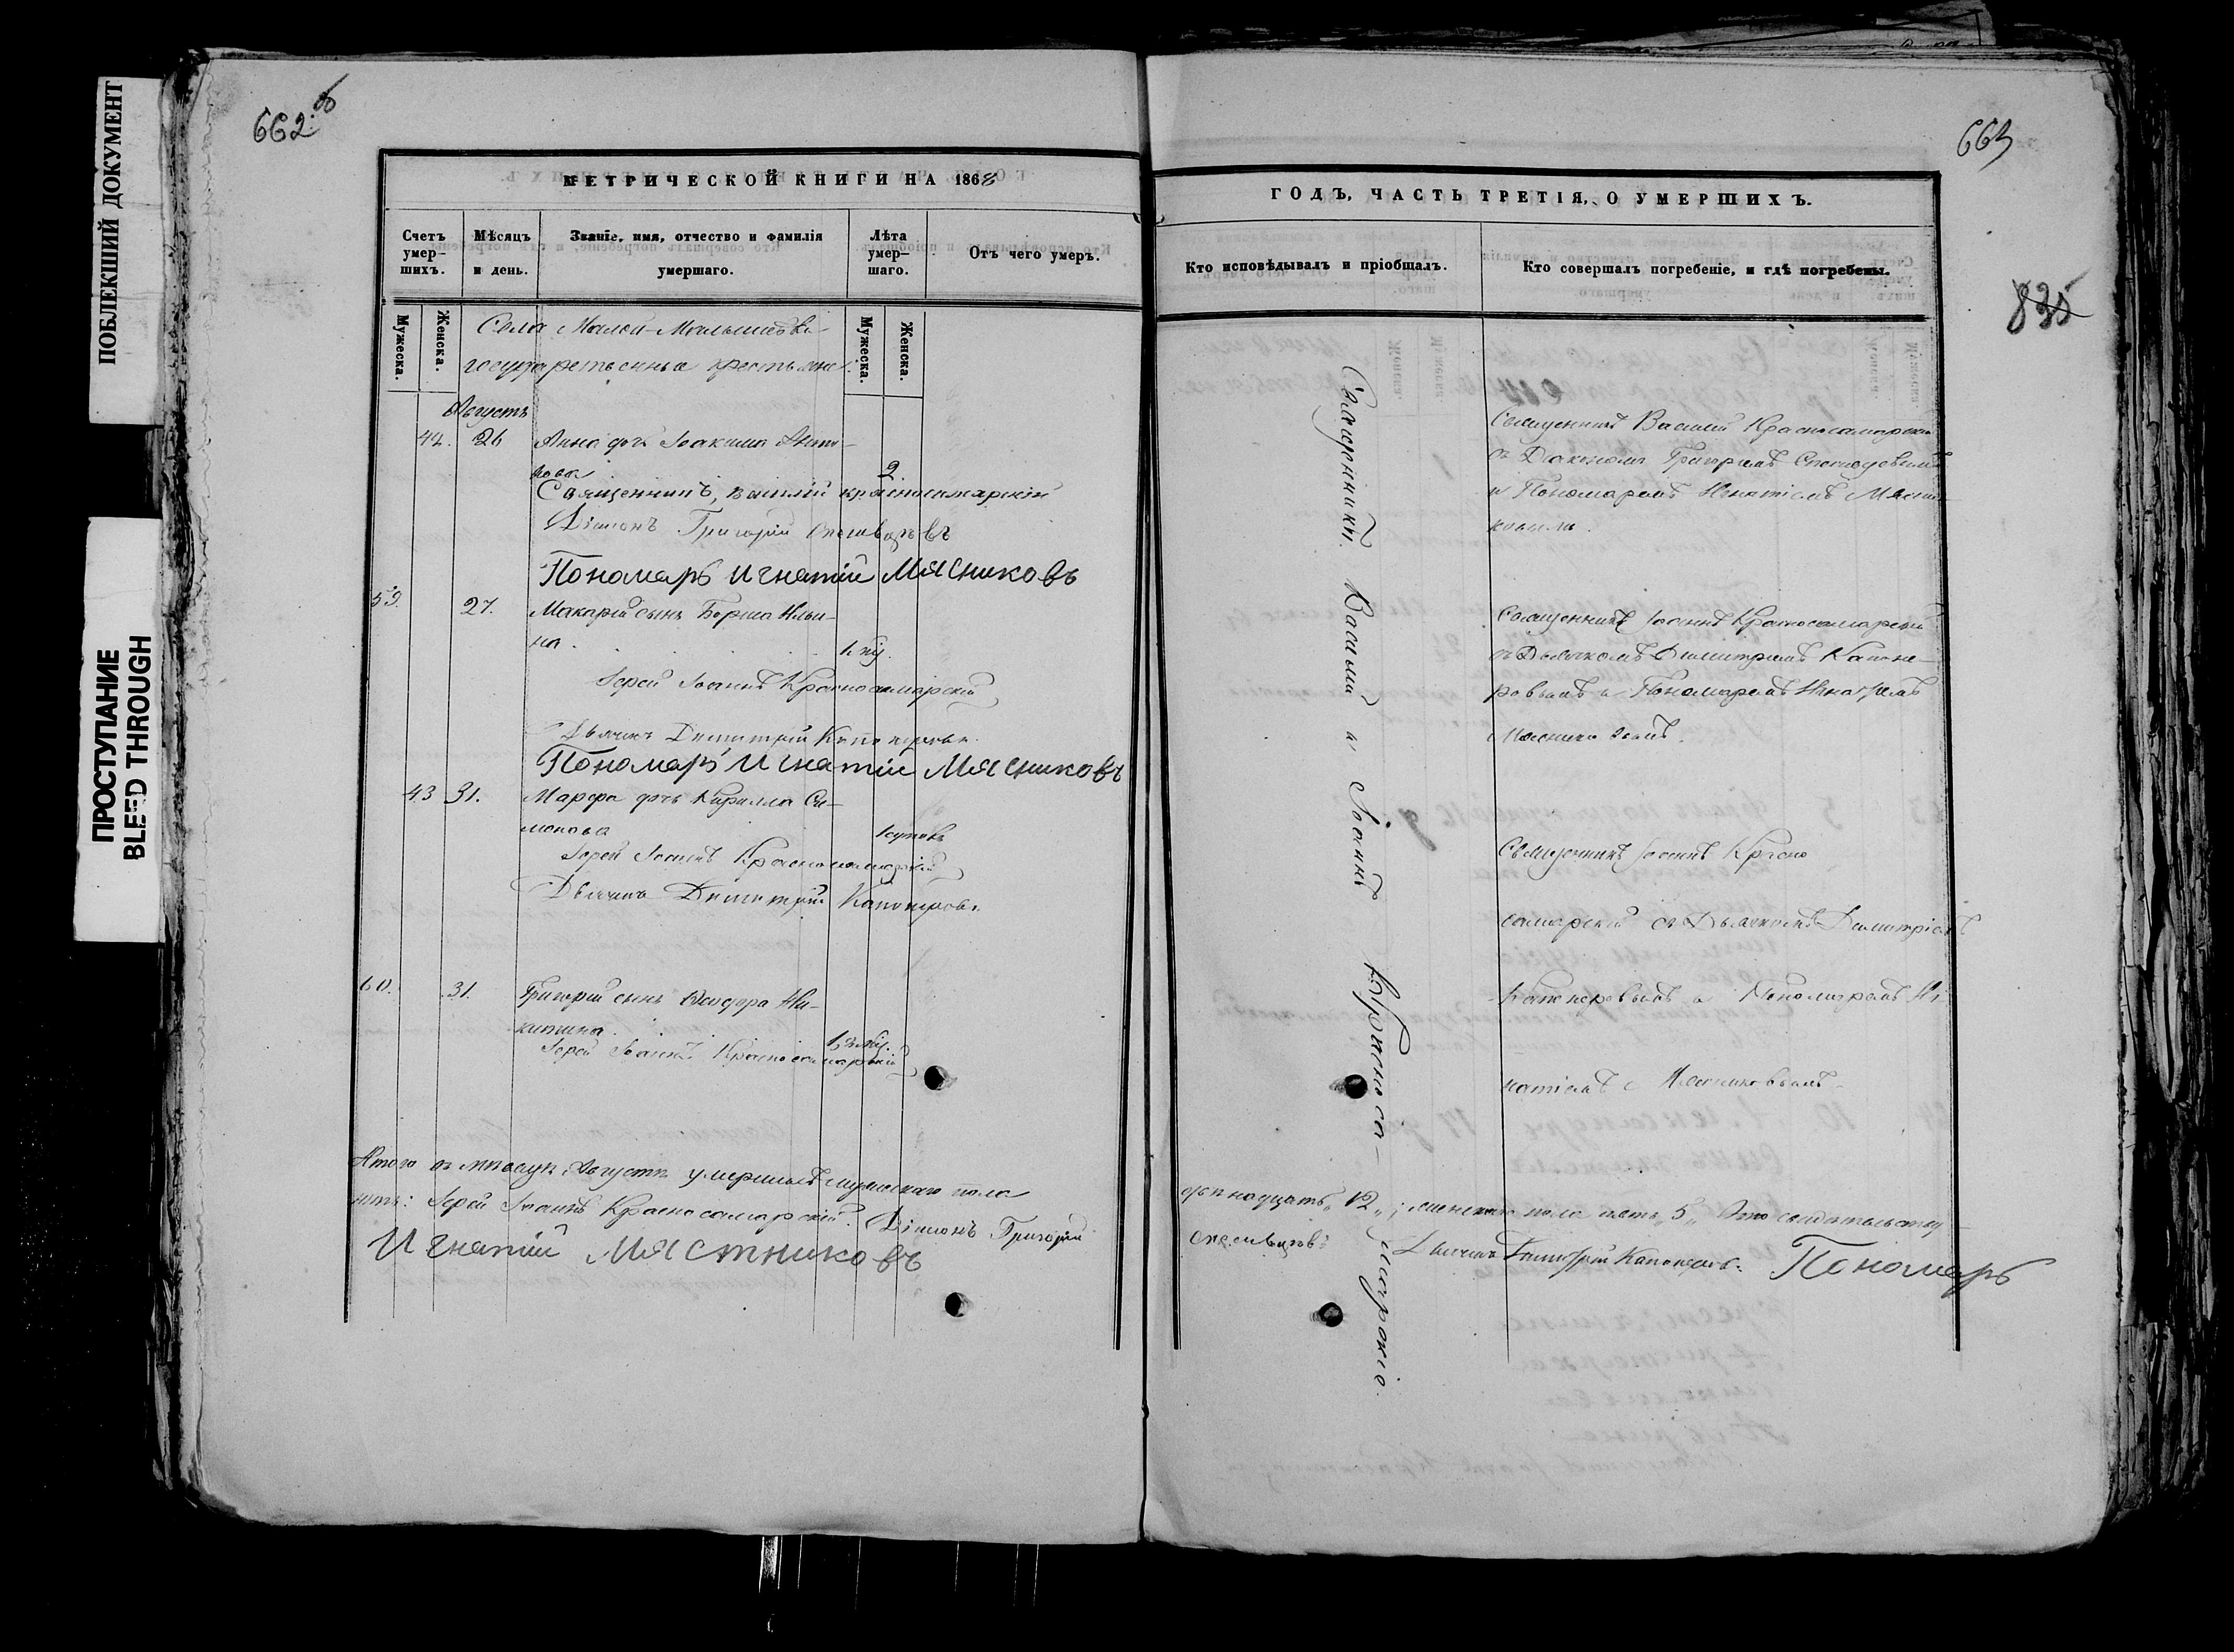 ПОБЛЕКШИЙ ДОКУМЕНТ
ПРОСТУПАНИЕ
BLEED THROUGH
662 об
МЕТРИЧЕСКОЙ КНИГИ НА 1868
Счетъ умер-шихъ.
Мѣсяцъ и день.
Званіе, имя, отчество и фамилія умершаго.
Лѣта умер-шаго.
Отъ чего умеръ.
Мужеска.
Женска.
Мужеска.
Женска.
Села Малой-Малышевки
государственныя крестьяне
Августъ
42. 26 Анна дочь Іоакима Анто-
нова 2.
Священникъ, василій красносамарскій
Діаконъ Григорій
Пономарь Игнатій Мясниковъ
59. 27. Макарій сынъ Ильи-
на
Іерей Іоаннъ Красносамарскій
Дьячекъ Димитрій Капонеровъ
Пономарь Игнатій Мясниковъ
43 31. Марфа дочь Кирилла Си-
монова
Іерей Іоаннъ Красносамарскій
Дьячекъ Димитрій Капонеровъ
60. 31. Григорій сынъ Ѳеодора Ни-
китина
Іерей Іоаннъ Красносамарскій
Итого въ мѣсяцѣ Августѣ умершихъ мужескаго пола
Іерей Іоаннъ Красносамарскій. Діаконъ Григорій
Игнатій Мястниковъ
663
835
ГОДЪ, ЧАСТЬ ТРЕТІЯ, О УМЕРШИХЪ.
Кто исповѣдывалъ и пріобщалъ.
Кто совершалъ погребеніе, и гдѣ погребены.
Священники Василій и Іоаннъ Красноса-
марскіе
Священникъ Василій Красносамарскій
съ Діакономъ Григоріемъ
и Пономаремъ Игнатіемъ Мясни-
ковымъ.
Священникъ Іоаннъ Красносамарскій
съ Дьячкомъ Димитріемъ Капоне-
ровымъ и Пономаремъ Игнатіемъ
Мясниковымъ.
Священникъ Іоаннъ Красно
самарскій съ Дьячкомъ Димитріемъ
Капонеровымъ и Пономаремъ Иг
натіемъ Мясниковымъ
двѣнадцать, 12, женскаго пола пять, 5,
Дьячекъ Димитрій Капонеровъ. Пономарь